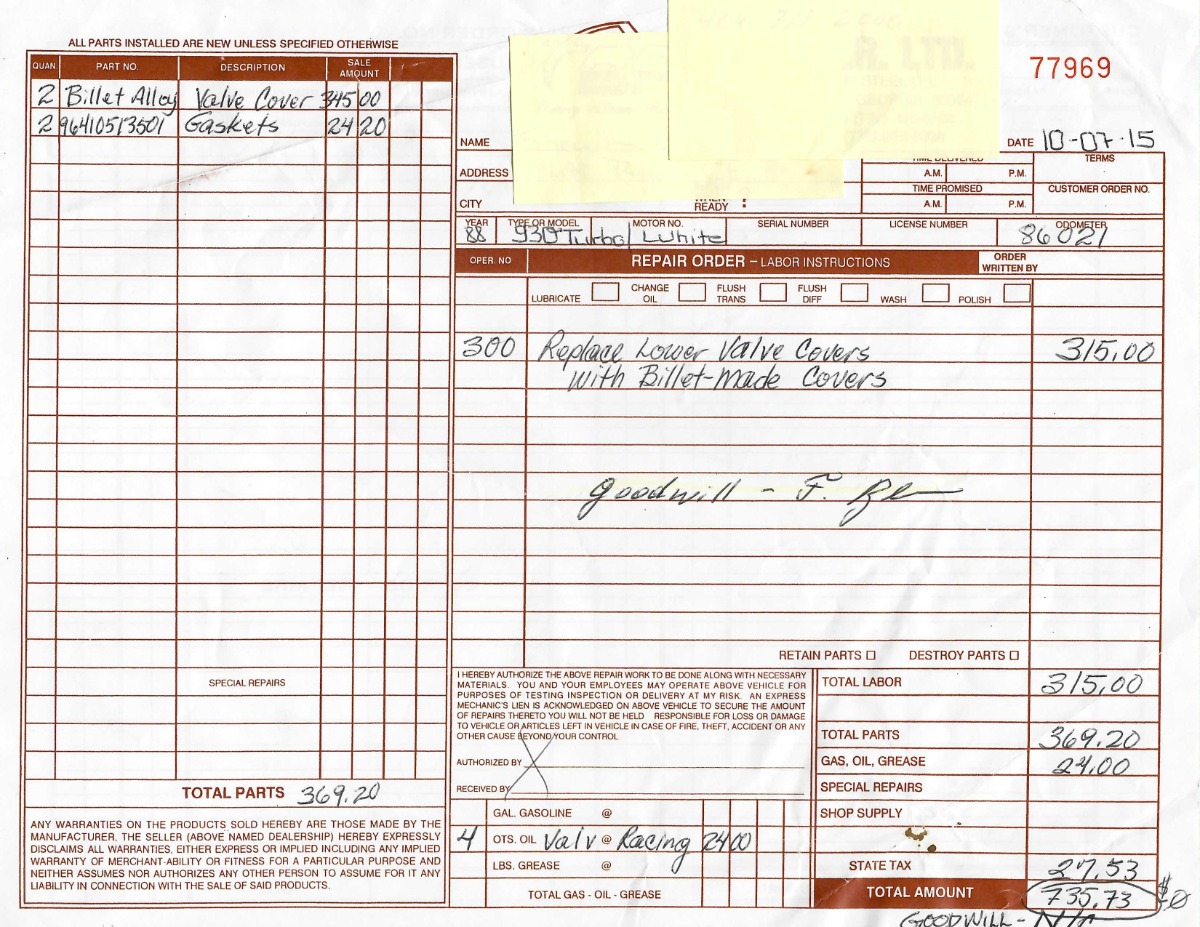 ALL PARTS INSTALLED ARE NEW UNLESS SPECIFIED OTHERWISE
QUAN. PART NO. DESCRIPTION SALE AMOUNT
2 Billet Alloy Valve Cover 345 00
2 96410513501 Gaskets 24 20
SPECIAL REPAIRS
TOTAL PARTS 369.20
ANY WARRANTIES ON THE PRODUCTS SOLD HEREBY ARE THOSE MADE BY THE
MANUFACTURER. THE SELLER (ABOVE NAMED DEALERSHIP) HEREBY EXPRESSLY
DISCLAIMS ALL WARRANTIES, EITHER EXPRESS OR IMPLIED INCLUDING ANY IMPLIED
WARRANTY OF MERCHANT-ABILITY OR FITNESS FOR A PARTICULAR PURPOSE AND
NEITHER ASSUMES NOR AUTHORIZES ANY OTHER PERSON TO ASSUME FOR IT ANY
LIABILITY IN CONNECTION WITH THE SALE OF SAID PRODUCTS.
77969
NAME DATE 10-07-15
ADDRESS TIME DELIVERED A.M. P.M. TERMS
CITY WHEN READY TIME PROMISED A.M. P.M. CUSTOMER ORDER NO.
YEAR TYPE OR MODEL MOTOR NO. SERIAL NUMBER LICENSE NUMBER ODOMETER
88 930 Turbo White 86021
OPER. NO REPAIR ORDER – LABOR INSTRUCTIONS ORDER WRITTEN BY
LUBRICATE CHANGE OIL FLUSH TRANS FLUSH DIFF WASH POLISH
300 Replace Lower Valve Covers 315.00
with Billet-Made Covers
goodwill - F.
RETAIN PARTS DESTROY PARTS
I HEREBY AUTHORIZE THE ABOVE REPAIR WORK TO BE DONE ALONG WITH NECESSARY
MATERIALS. YOU AND YOUR EMPLOYEES MAY OPERATE ABOVE VEHICLE FOR
PURPOSES OF TESTING INSPECTION OR DELIVERY AT MY RISK. AN EXPRESS
MECHANIC'S LIEN IS ACKNOWLEDGED ON ABOVE VEHICLE TO SECURE THE AMOUNT
OF REPAIRS THERETO YOU WILL NOT BE HELD RESPONSIBLE FOR LOSS OR DAMAGE
TO VEHICLE OR ARTICLES LEFT IN VEHICLE IN CASE OF FIRE, THEFT, ACCIDENT OR ANY
OTHER CAUSE BEYOND YOUR CONTROL.
AUTHORIZED BY X
RECEIVED BY
GAL. GASOLINE @
4 QTS. OIL Valv @ Racing 24 00
LBS. GREASE @
TOTAL GAS - OIL - GREASE
TOTAL LABOR 315.00
TOTAL PARTS 369.20
GAS, OIL, GREASE 24.00
SPECIAL REPAIRS
SHOP SUPPLY
STATE TAX 27.53
TOTAL AMOUNT 735.73 $0
GOODWILL - N/C